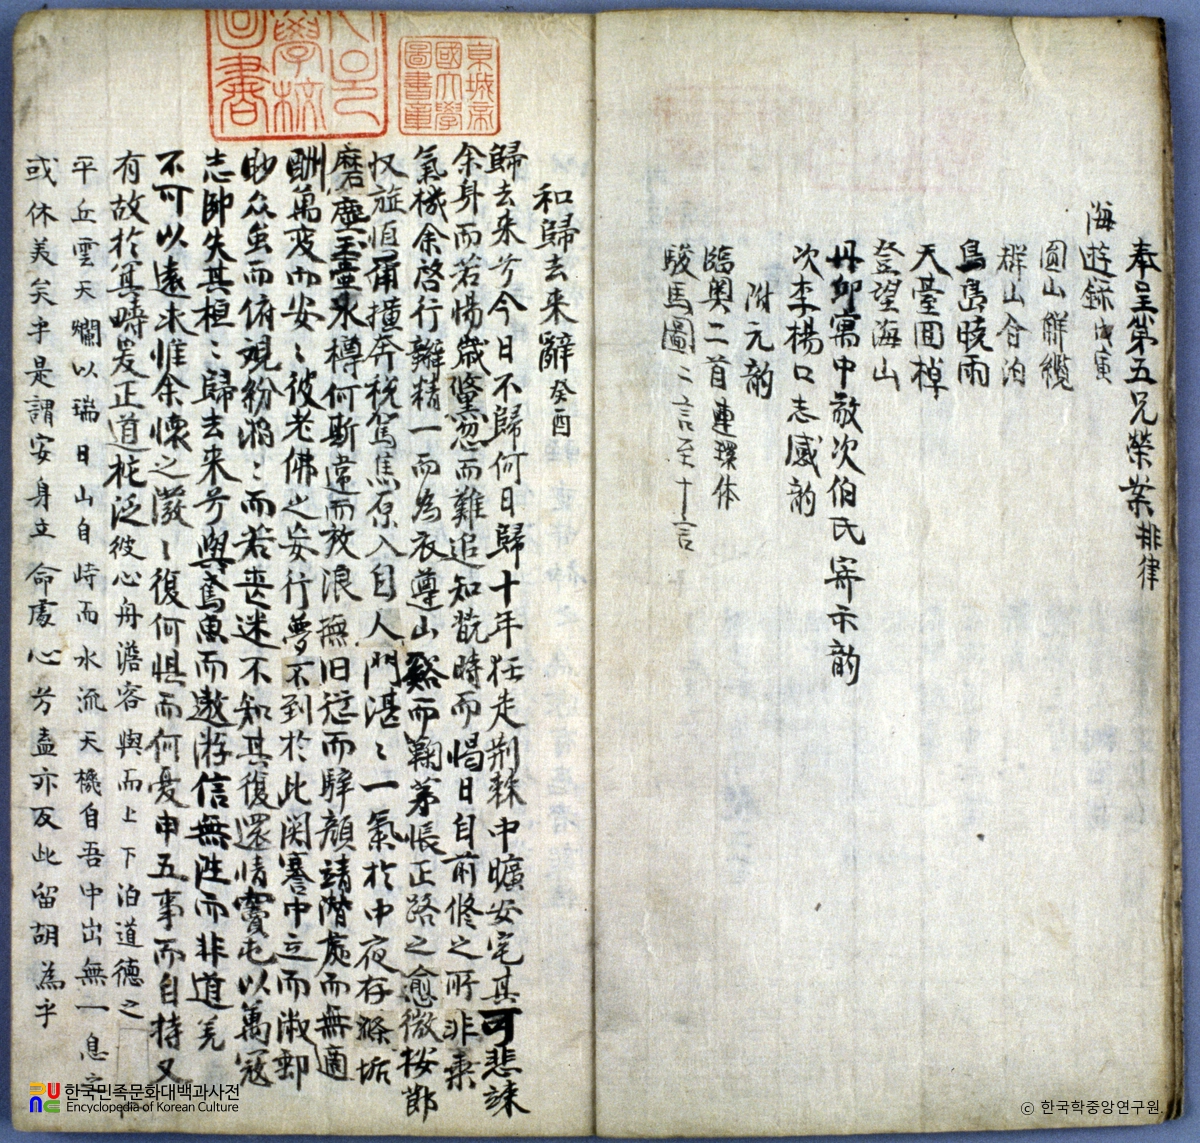 奉呈第五兄榮案 排律
海遊錄 戊寅
圓山解纜
群山合泊
烏島曉雨
天臺回棹
登望海山
丹邱寓中敬次伯氏寄示韵
次李楊口志感韵
附元韵
臨奧二首 連環体
駿馬圖 二言至十言
和歸去來辭 癸酉
歸去来兮今日不歸何日歸十年狂走荆棘中曠安宅其可悲諫
余身而若惕歲儵忽而難追知靗時而愒日目前修之所非棄
氣機余啓行辦精一而為衣遵山谿而鞠茅悵正路之愈微
旋恒甭撗奔税駕焦原入自人門湛湛一氣於中夜存滌垢
磨塵玉壷氷樽何斯違而放浪撫旧逕而騂顔靖潛處而無適
酬萬变而安安彼老佛之妄行夢不到於此関謇中立而淑郵
眇众蚩而俯視紛滔滔而若丧迷不知其復還情竇屯以萬冦
志帥失其桓桓歸去来兮與鳶魚而遨游信無陞而非道羌
不可以遠求惟余懷之激激復何惧而何憂申五事而自持又
有故於箕疇爰正道柁泛彼心舟澹容與而上下泊道德之
平丘雲天爛以瑞日山自峙而水流天機自吾中出無一息之
或休美矣乎是謂安身立命處心兮盍亦反此留胡為乎
京城帝國大學圖書章
한국민족문화대백과사전
Encyclopedia of Korean Culture
© 한국학중앙연구원